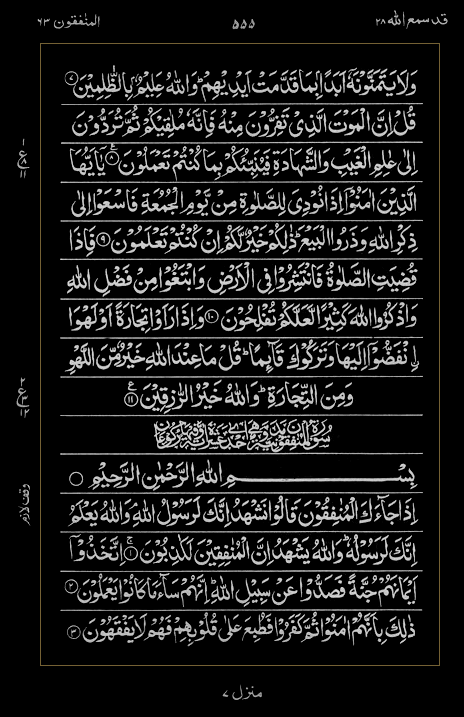 قد سمع الله ٢٨ ٥٥٥ المنٰفقون ٦٣
وَلَا يَتَمَنَّوْنَهٗۤ اَبَدًۢا بِمَا قَدَّمَتْ اَيْدِيْهِمْ ؕ وَاللّٰهُ عَلِيْمٌۢ بِالظّٰلِمِيْنَ ۝٧
قُلْ اِنَّ الْمَوْتَ الَّذِيْ تَفِرُّوْنَ مِنْهُ فَاِنَّهٗ مُلٰقِيْكُمْ ثُمَّ تُرَدُّوْنَ
اِلٰى عٰلِمِ الْغَيْبِ وَالشَّهَادَةِ فَيُنَبِّئُكُمْ بِمَا كُنْتُمْ تَعْمَلُوْنَ ۝٨ يٰۤاَيُّهَا
الَّذِيْنَ اٰمَنُوْۤا اِذَا نُوْدِيَ لِلصَّلٰوةِ مِنْ يَّوْمِ الْجُمُعَةِ فَاسْعَوْا اِلٰى
ذِكْرِ اللّٰهِ وَذَرُوا الْبَيْعَ ؕ ذٰلِكُمْ خَيْرٌ لَّكُمْ اِنْ كُنْتُمْ تَعْلَمُوْنَ ۝٩ فَاِذَا
قُضِيَتِ الصَّلٰوةُ فَانْتَشِرُوْا فِي الْاَرْضِ وَابْتَغُوْا مِنْ فَضْلِ اللّٰهِ
وَاذْكُرُوا اللّٰهَ كَثِيْرًا لَّعَلَّكُمْ تُفْلِحُوْنَ ۝١٠ وَاِذَا رَاَوْا تِجَارَةً اَوْ لَهْوَا
ۨانْفَضُّوْۤا اِلَيْهَا وَتَرَكُوْكَ قَآئِمًا ؕ قُلْ مَا عِنْدَ اللّٰهِ خَيْرٌ مِّنَ اللَّهْوِ
وَمِنَ التِّجَارَةِ ؕ وَاللّٰهُ خَيْرُ الرّٰزِقِيْنَ ۝١١
بِسْمِ اللّٰهِ الرَّحْمٰنِ الرَّحِيْمِ
اِذَا جَآءَكَ الْمُنٰفِقُوْنَ قَالُوْا نَشْهَدُ اِنَّكَ لَرَسُوْلُ اللّٰهِ ۘ وَاللّٰهُ يَعْلَمُ
اِنَّكَ لَرَسُوْلُهٗ ؕ وَاللّٰهُ يَشْهَدُ اِنَّ الْمُنٰفِقِيْنَ لَكٰذِبُوْنَ ۝١ اِتَّخَذُوْۤا
اَيْمَانَهُمْ جُنَّةً فَصَدُّوْا عَنْ سَبِيْلِ اللّٰهِ ؕ اِنَّهُمْ سَآءَ مَا كَانُوْا يَعْمَلُوْنَ ۝٢
ذٰلِكَ بِاَنَّهُمْ اٰمَنُوْا ثُمَّ كَفَرُوْا فَطُبِعَ عَلٰى قُلُوْبِهِمْ فَهُمْ لَا يَفْقَهُوْنَ ۝٣
وقف لازم
منزل ٧